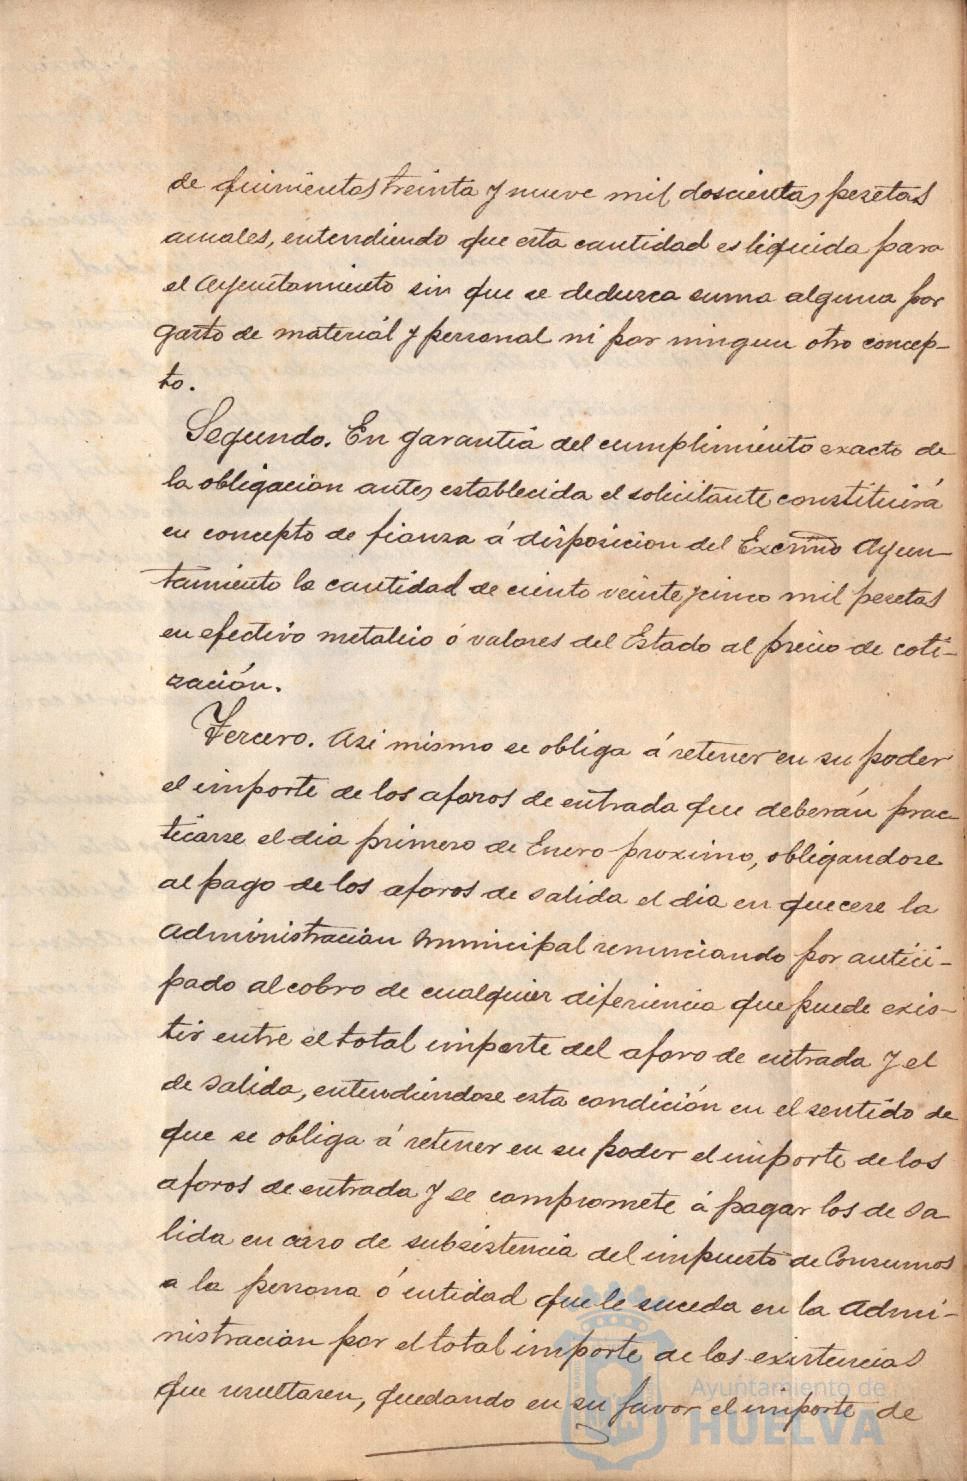 de quinientas treinta y nueve mil doscientas pesetas
anuales, entendiendo que esta cantidad es liquida para
el Ayuntamiento sin que se deduzca suma alguna por
gasto de material y personal ni por ningun otro concep-
to.
Segundo. En garantia del cumplimiento exacto de
la obligacion antes establecida el solicitante constituirá
en concepto de fianza á disposicion del Excmo Ayun-
tamiento la cantidad de ciento veinte y cinco mil pesetas
en efectivo metalico ó valores del Estado al precio de coti-
zación.
Tercero. Asi mismo se obliga á retener en su poder
el importe de los aforos de entrada que deberán prac-
ticarse el dia primero de Enero proximo, obligandose
al pago de los aforos de salida el dia en que cese la
Administracion municipal renunciando por antici-
pado al cobro de cualquier diferiencia que puede exis-
tir entre el total importe del aforo de entrada y el
de salida, entendiendose esta condición en el sentido de
que se obliga á retener en su poder el importe de los
aforos de entrada y se compromete á pagar los de sa
lida en caso de subsistencia del impuesto de Consumos
a la persona ó entidad que le suceda en la Admi-
nistracion por el total importe de las existencias
que resultasen, quedando en su favor el importe de
Ayuntamiento de
HUELVA